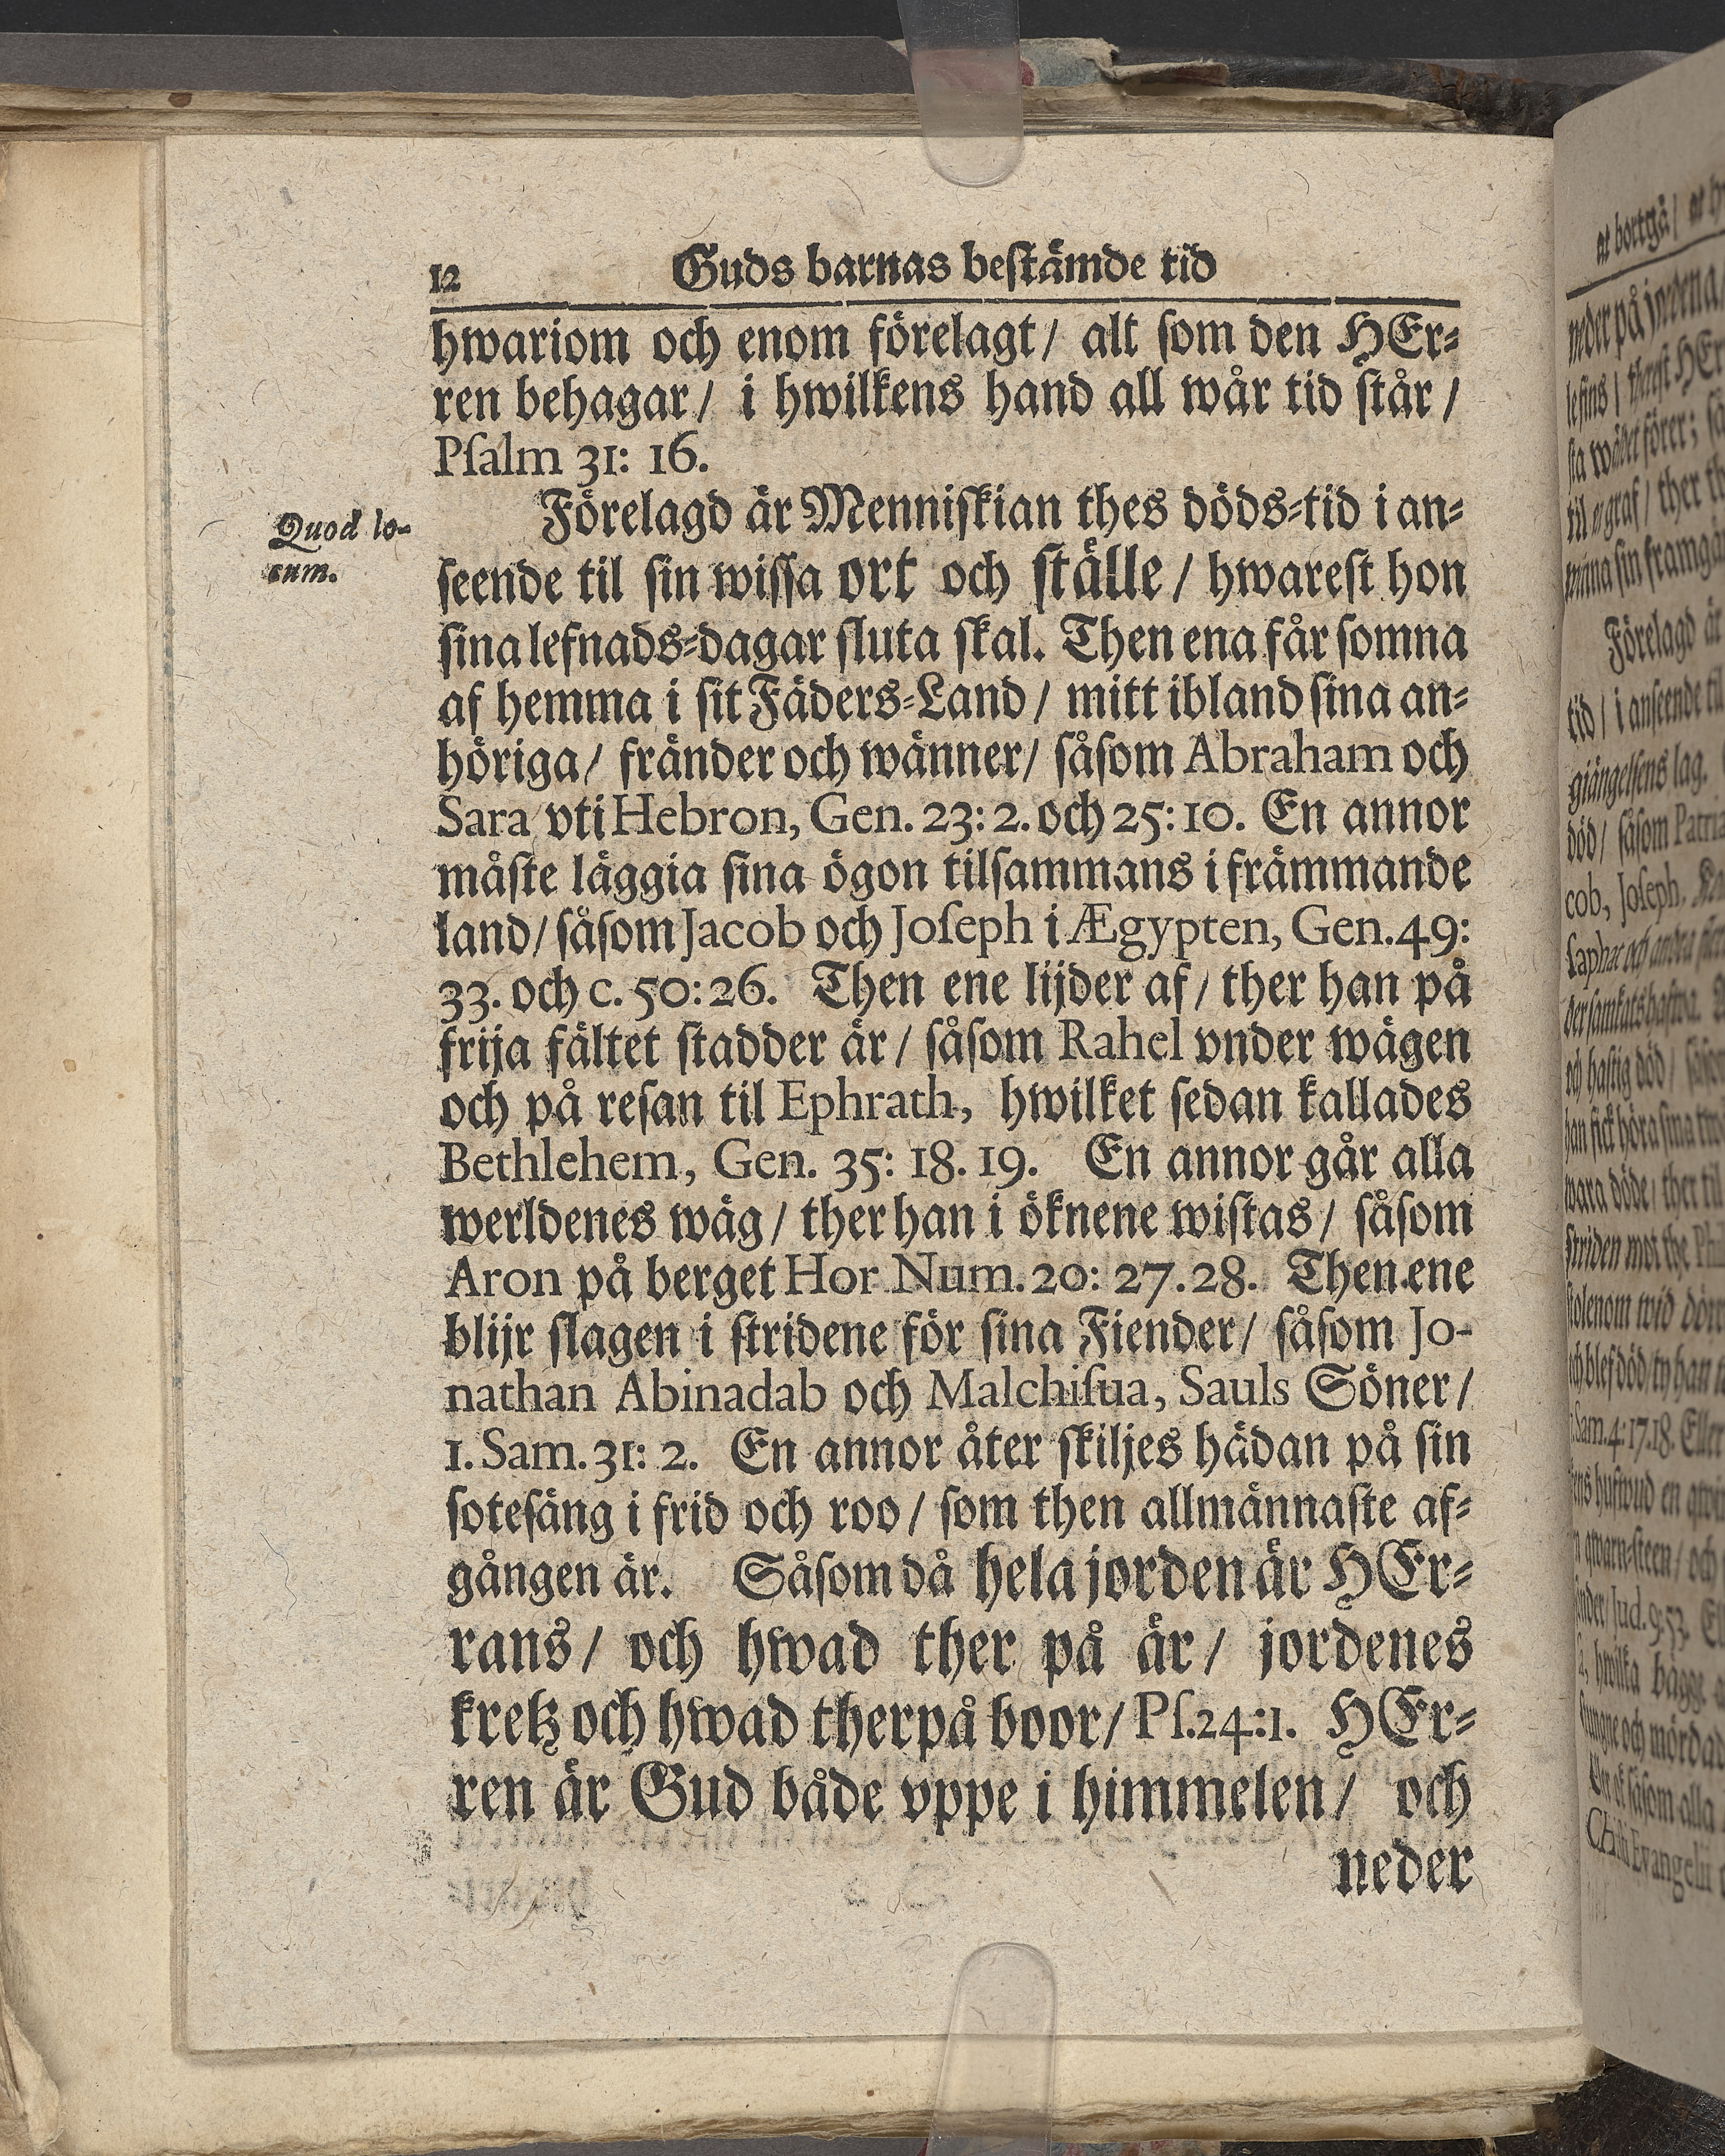 12 Guds barnas beſtämde tid
hwariom och enom förelagt/ alt ſom den HEr-
ren behagar/ i hwilkens hand all wår tid ſtår/
Pſalm 31: 16.
Quod lo-
cum.
Förelagd är Menniſkian thes döds-tid i an-
ſeende til ſin wiſſa ort och ſtälle/ hwareſt hon
ſina lefnads-dagar ſluta ſkal. Then ena får ſomna
af hemma i ſit Fäders-Land/ mitt ibland ſina an-
höriga/ fränder och wänner/ ſåſom Abraham och
Sara vti Hebron, Gen. 23: 2. och 25: 10. En annor
måſte läggia ſina ögon tilſammans i främmande
land/ ſåſom Jacob och Joſeph i Ægypten, Gen. 49:
33. och c. 50: 26. Then ene lijder af/ ther han på
frija fältet ſtadder är/ ſåſom Rahel vnder wägen
och på reſan til Ephrath, hwilket ſedan kallades
Bethlehem, Gen. 35: 18. 19. En annor går alla
werldenes wäg/ ther han i öknene wiſtas/ ſåſom
Aron på berget Hor Num. 20: 27. 28. Then ene
blijr ſlagen i ſtridene för ſina Fiender/ ſåſom Jo-
nathan Abinadab och Malchiſua, Sauls Söner/
1. Sam. 31: 2. En annor åter ſkiljes hädan på ſin
ſoteſäng i frid och roo/ ſom then allmännaſte af-
gången är. Såſom då hela jorden är HEr-
rans/ och hwad ther på är/ jordenes
kretz och hwad therpå boor/ Pſ. 24: 1. HEr-
ren är Gud både vppe i himmelen/ och
neder